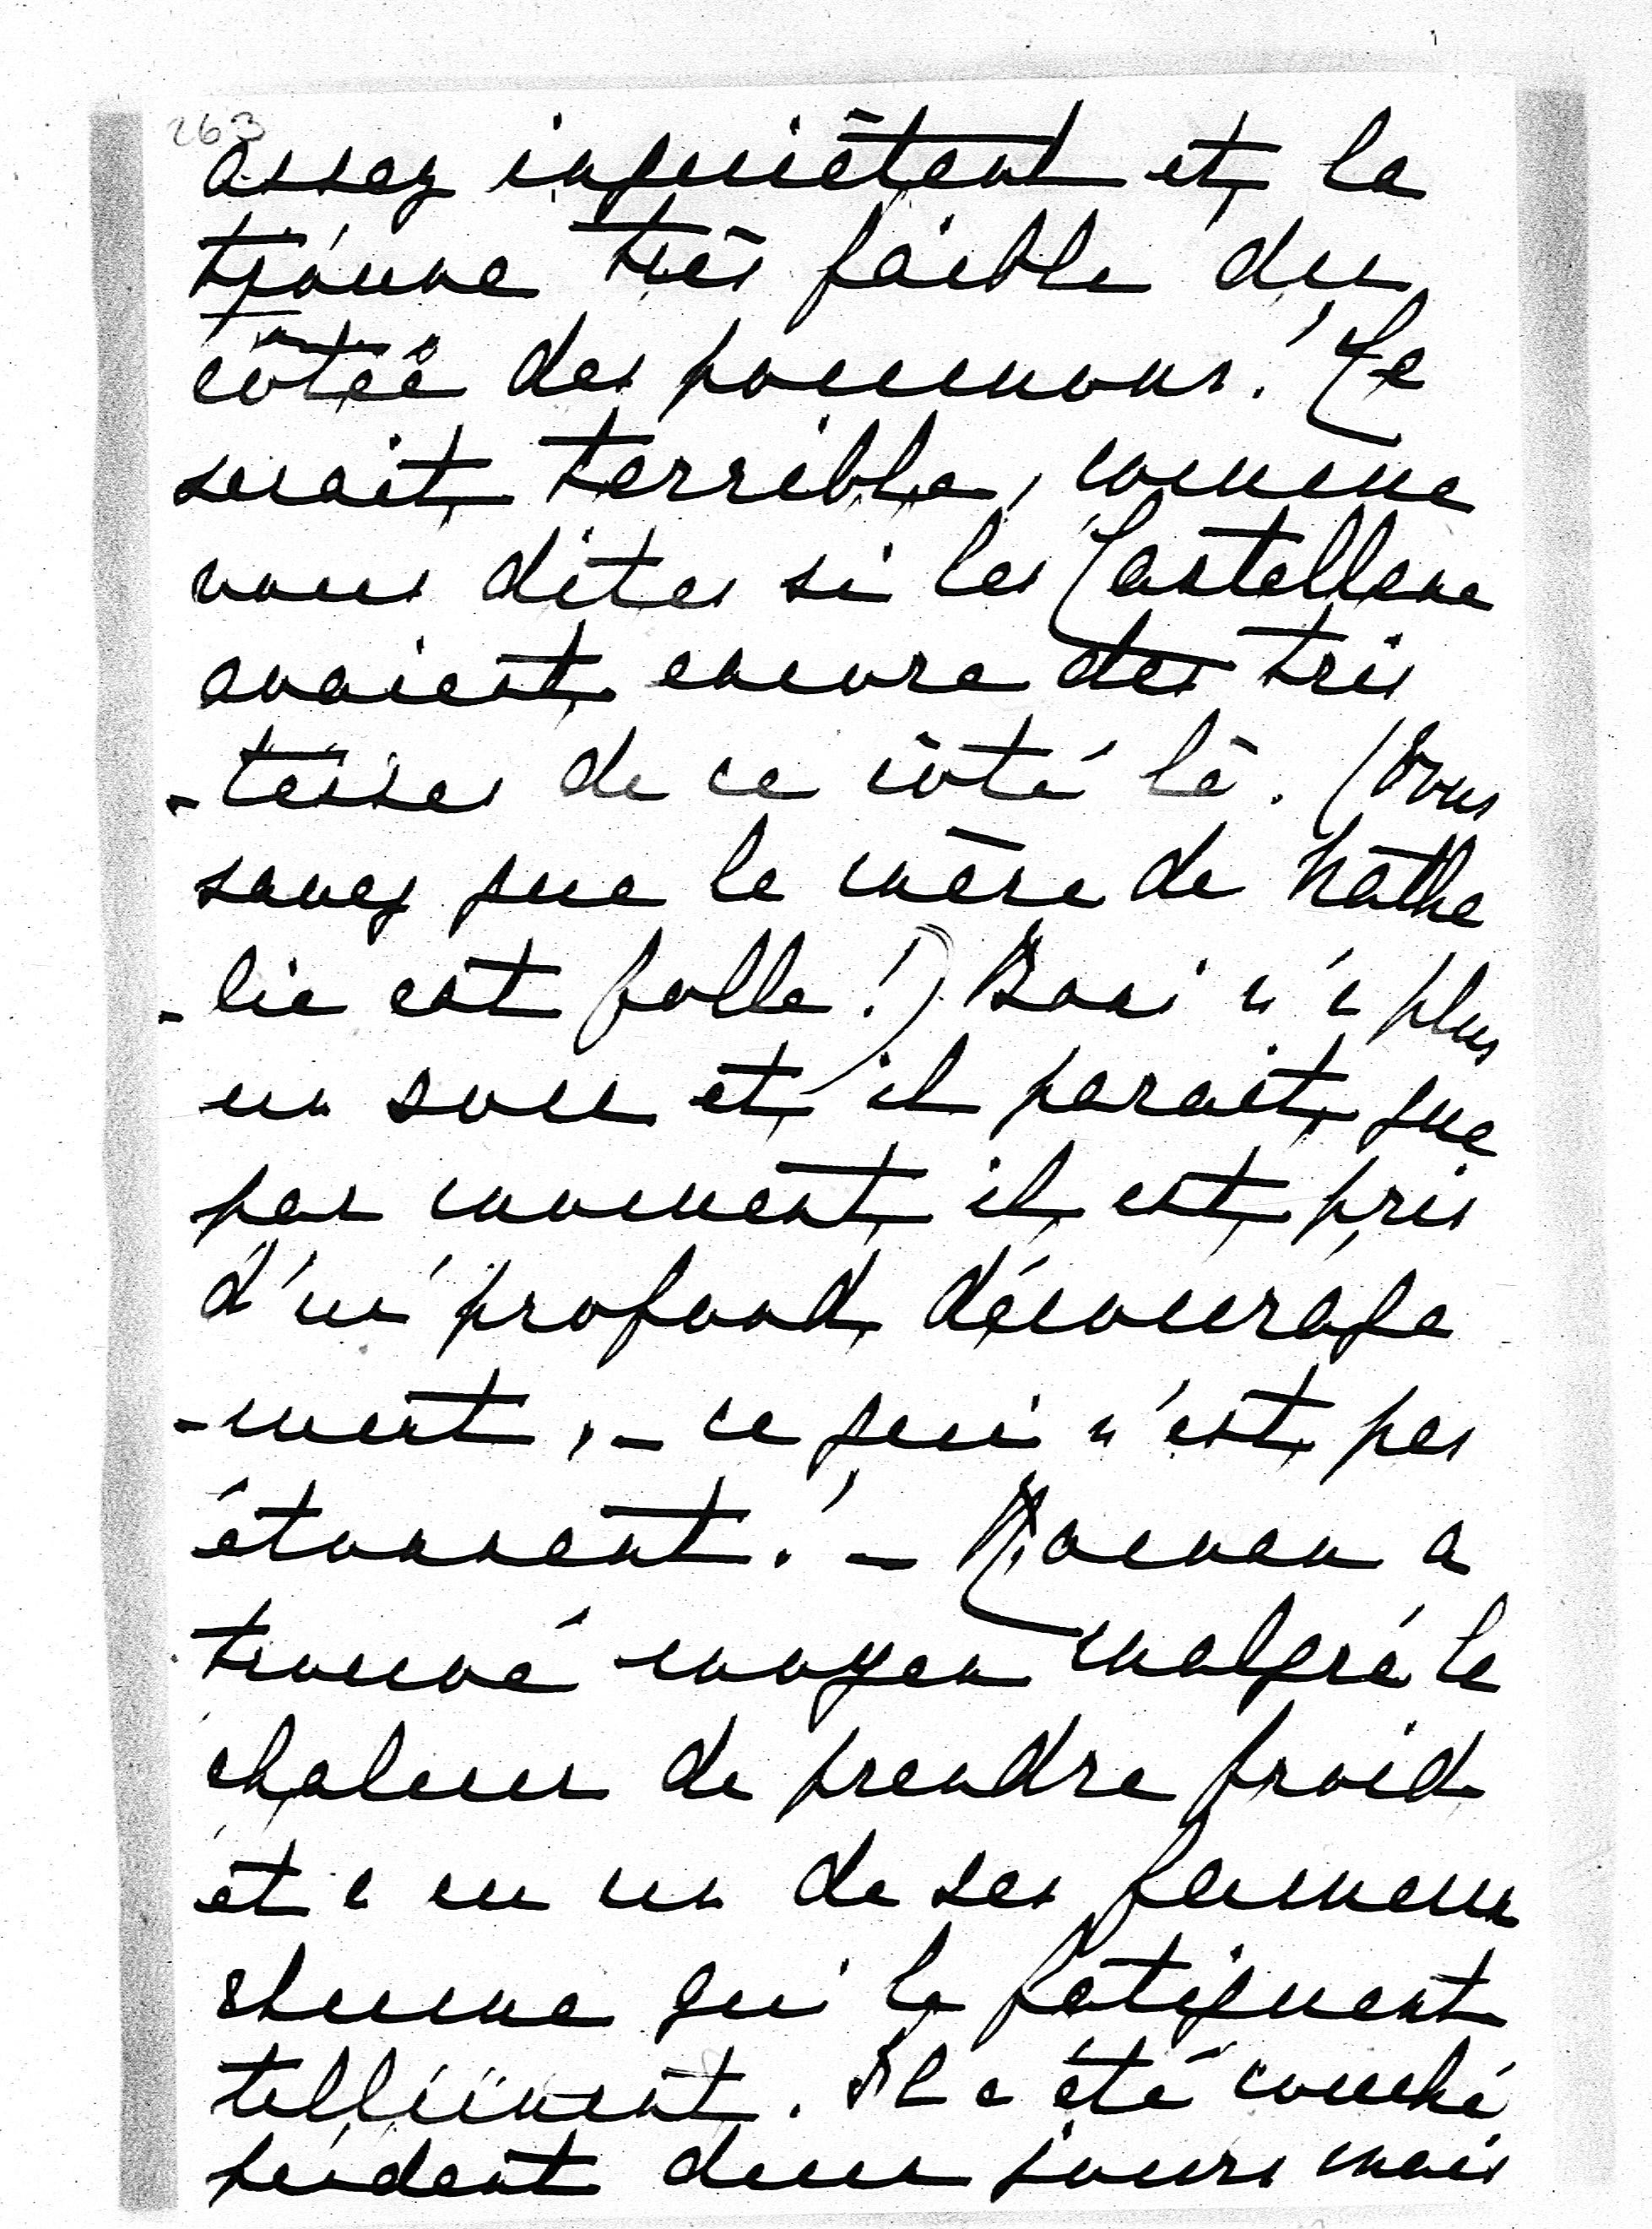 263
assez inquiètant et la
trouve très faible du
côtée des poumons! Ce
serait terrible, comme
vous dites si les Castellane
avaient encore des tris
-tesses de ce côté là. (Vous
savez que la mère de Natha
-lie est folle!) Boni n'a plus
un sou et il parait que
par moment il est pris
d'un profond décourage
-ment, - ce qui n'est pas
étonnant! - Maman a
trouvé moyen malgré la
chaleur de prendre froid
et a eu un de ses fameux
rhume qui la fatiguent
tellement. Il a été couché
pendant deux jours mais